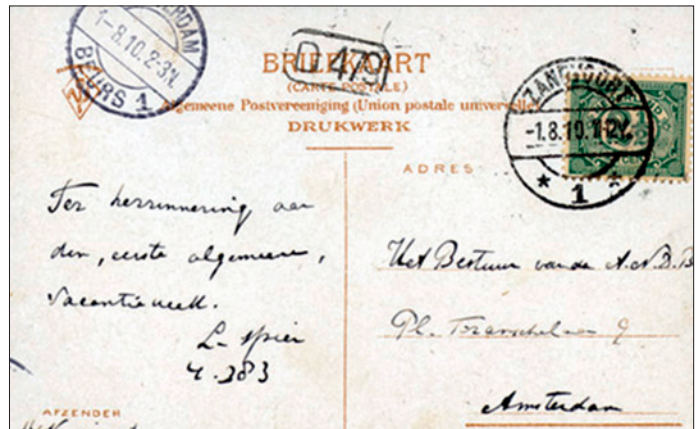 RDAM
1-8.10.2-3N.
BEURS 1
D 479
BRIEFKAART
(CARTE POSTALE)
Algemeene Postvereeniging (Union postale universelle)
DRUKWERK
ZANDVOORT
-1.8.10.
1
ADRES
Ter herinnering aan
den „eerste algemeene„
vacantieweek.
L. Spier
4.383
Het Bestuur van de A.N.D.B
Pl. Franschelaan 9
Amsterdam
AFZENDER